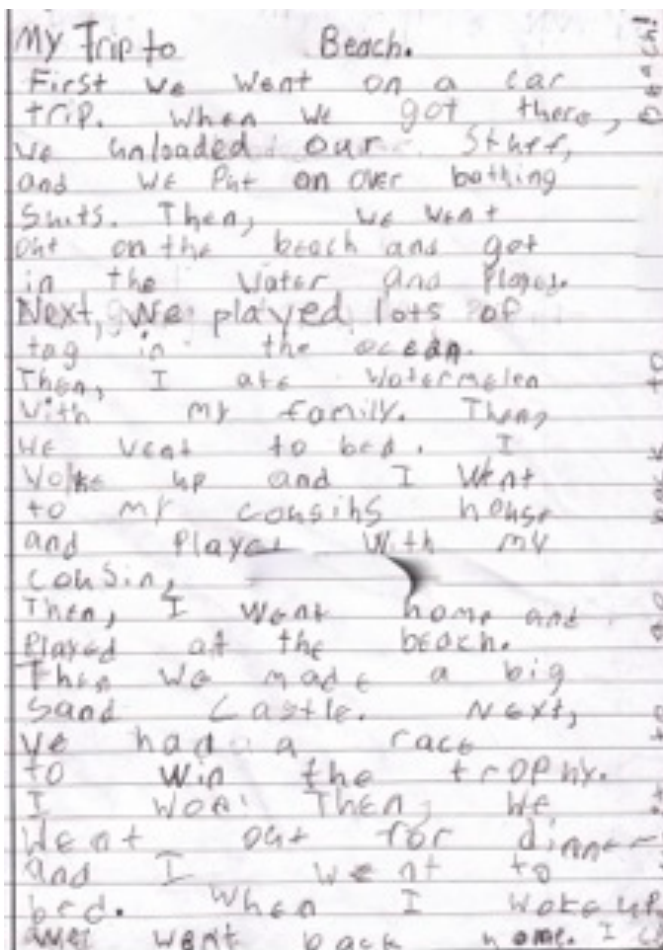 My Trip to Beach.
First we went on a car
trip. When we got there,
we unloaded our stuff,
and we put on over bathing
Suits. Then, we went
out on the beach and got
in the water and played.
Next, we played lots of
tag in the ocean.
Then, I ate watermelen
with my family. Then,
we went to bed. I
woke up and I went
to my cousins house
and played with my
cousin,
Then, I went home and
Played at the beach.
Then we made a big
sand castle. Next,
we had a race
to win the trophy.
I won! Then, we
went out for dinner
and I went to
bed. When I woke up,
went back home. I
to
back
go
to
beach!